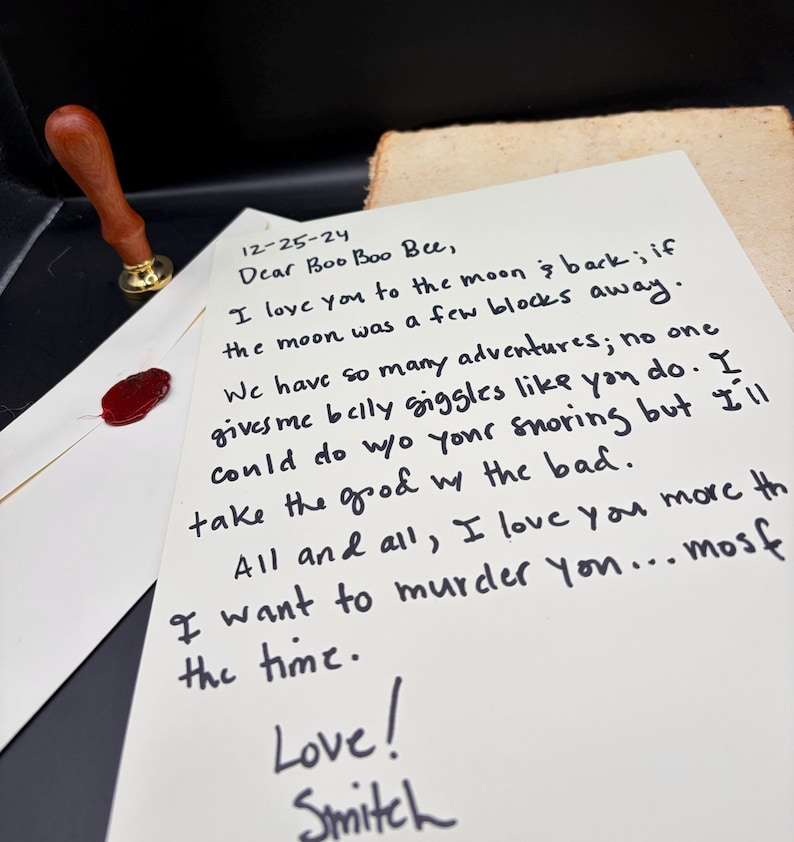 12-25-24
Dear Boo Boo Bee,
I love you to the moon & back; if
the moon was a few blocks away.
We have so many adventures; no one
gives me belly giggles like you do. I
could do w/o your snoring but I'll
take the good w/ the bad.
All and all, I love you more th
I want to murder you...most
the time.
Love!
Smitch